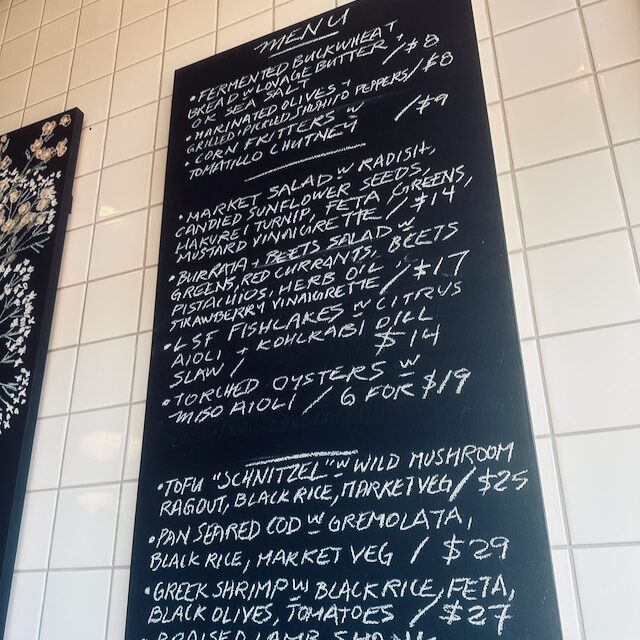 MENU
• FERMENTED BUCKWHEAT
BREAD w LOVAGE BUTTER +
OK SEA SALT / $8
• MARINATED OLIVES +
GRILLED + PICKLED SHISHITO PEPPERS / $8
• CORN FRITTERS w
TOMATILLO CHUTNEY / $9
• MARKET SALAD w RADISH,
CANDIED SUNFLOWER SEEDS,
HAKUREI TURNIP, FETA, GREENS,
MUSTARD VINAIGRETTE / $14
• BURRATA + BEETS SALAD w BEETS
GREENS, RED CURRANTS,
PISTACHIOS, HERB OIL
STRAWBERRY VINAIGRETTE / $17
• LSF FISHCAKES w CITRUS
AIOLI + KOHLRABI DILL
SLAW / $14
• TORCHED OYSTERS w
MISO AIOLI / 6 FOR $19
• TOFU "SCHNITZEL" w WILD MUSHROOM
RAGOUT, BLACK RICE, MARKET VEG / $25
• PAN SEARED COD w GREMOLATA,
BLACK RICE, MARKET VEG / $29
• GREEK SHRIMP w BLACK RICE, FETA,
BLACK OLIVES, TOMATOES / $27
• BRAISED LAMB SHANK